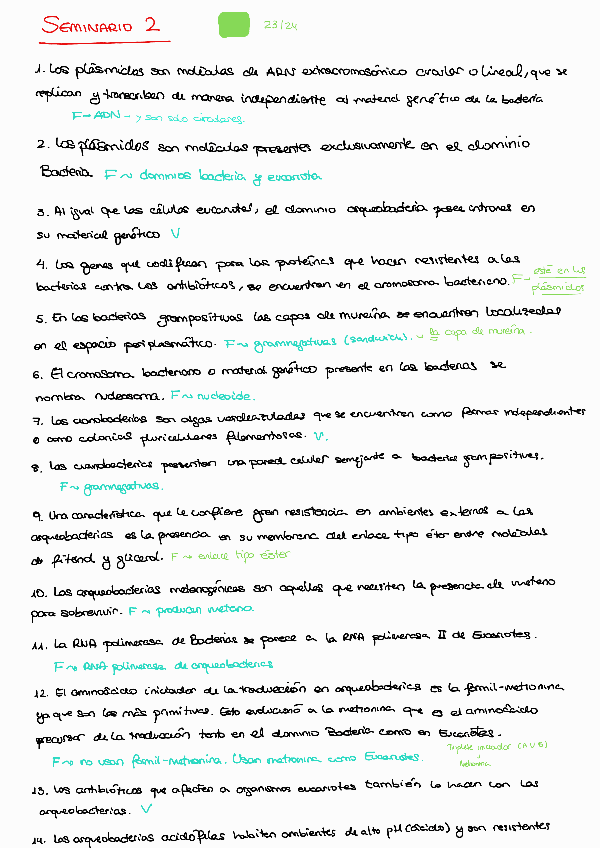 SEMINARIO 2 23/24
1. Los plásmidos son moléculas de ADN extracromosómico circular o lineal, que se
replican y transcriben de manera independiente al material genético de la bacteria
F → ADN → y son solo circulares.
2. Los plásmidos son moléculas presentes exclusivamente en el dominio
Bacteria. F ~ dominios bacteria y eucariota
3. Al igual que las células eucariotas, el dominio arqueobacteria posee intrones en
su material genético V
4. Los genes que codifican para las proteínas que hacen resistentes a las
bacterias contra los antibióticos, se encuentran en el cromosoma bacteriano. F → está en los
plásmidos
5. En las bacterias grampositivas las capas de mureína se encuentran localizadas
en el espacio periplasmático. F ~ gramnegativas (sandwich). ~ la capa de mureína.
6. El cromosoma bacteriano o material genético presente en las bacterias se
nombra nucleosoma. F ~ nucleoide.
7. Las cianobacterias son algas verdeazuladas que se encuentran como formas independientes
o como colonias pluricelulares filamentosas. V.
8. Las cianobacterias presentan una pared celular semejante a bacterias grampositivas.
F ~ gramnegativas.
9. Una característica que le confiere gran resistencia en ambientes externos a las
arqueobacterias es la presencia en su membrana del enlace tipo éter entre moléculas
de fitanol y glicerol. F → enlace tipo éster
10. Las arqueobacterias metanogénicas son aquellas que necesiten la presencia de metano
para sobrevivir. F ~ producen metano.
11. La RNA polimerasa de Bacterias se parece a la RNA polimerasa II de Eucariotes.
F ~ RNA polimerasa de arqueobacterias
12. El aminoácido iniciador de la traducción en arqueobacterias es la formil-metionina
ya que son las más primitivas. Esto evolucionó a la metionina que es el aminoácido
precursor de la traducción tanto en el dominio Bacteria como en Eucariotes.
F ~ no usan formil-metionina. Usan metionina como Eucariotes. Triplete iniciador (AUG)
Metionina
13. Los antibióticos que afectan a organismos eucariotas también lo hacen con las
arqueobacterias. V
14. Las arqueobacterias acidófilas habitan ambientes de alto pH (ácido) y son resistentes